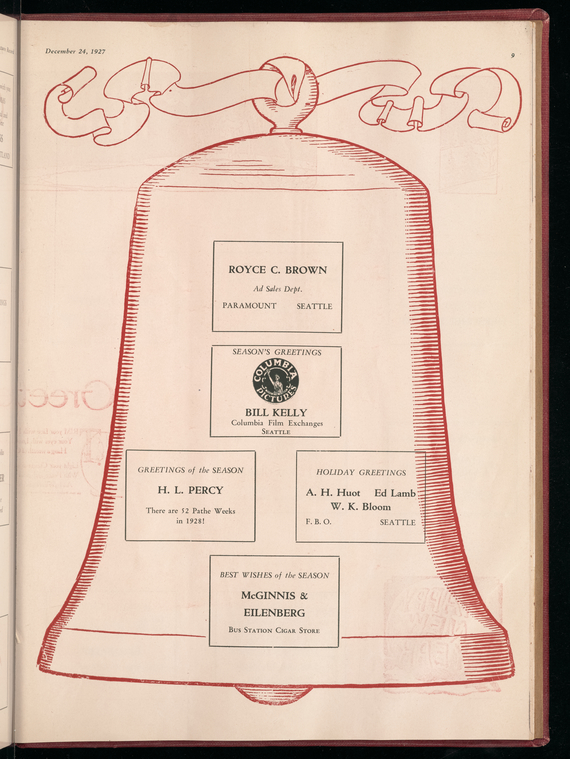 December 24, 1927
9
ROYCE C. BROWN
Ad Sales Dept.
PARAMOUNT SEATTLE
SEASON'S GREETINGS
COLUMBIA
PICTURES
BILL KELLY
Columbia Film Exchanges
SEATTLE
GREETINGS of the SEASON
H. L. PERCY
There are 52 Pathe Weeks
in 1928!
HOLIDAY GREETINGS
A. H. Huot Ed Lamb
W. K. Bloom
F. B. O. SEATTLE
BEST WISHES of the SEASON
McGINNIS &
EILENBERG
BUS STATION CIGAR STORE